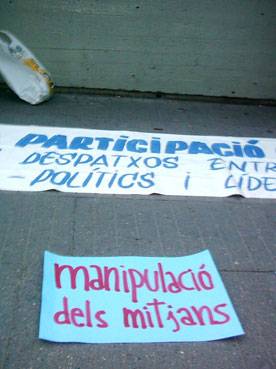 PARTICIPACIÓ
DESPATXOS ENTR
- POLÍTICS i LIDE
manipulació
dels mitjans